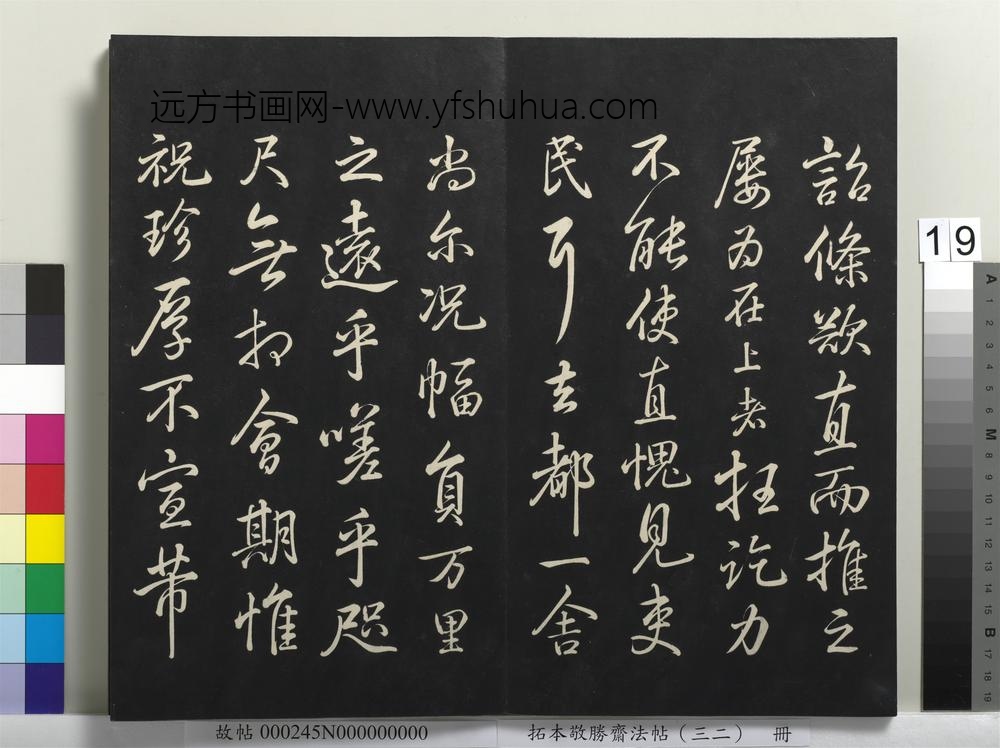 远方书画网-www.yfshuhua.com
詔條欲直而推之
屡为在上者抂訖力
不能使直愧見吏
民耳去都一舍
尚尔况幅員万里
之遠乎嗟乎咫
尺無相會期惟
祝珍厚不宣帶
19
A 1 2 3 4 5 6 M 8 9 10 11 12 13 14 15 B 17 18 19
故帖 000245N000000000
拓本敬勝齋法帖（三二） 冊